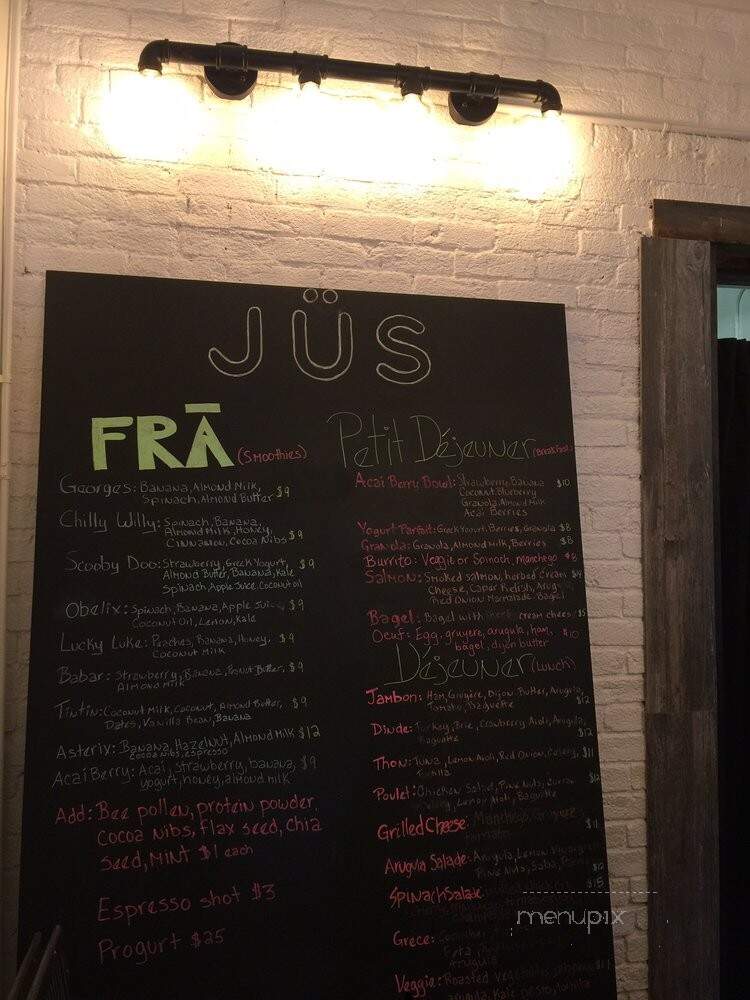 JÜS
FRĀ (Smoothies)
Georges: Banana, Almond Milk,
Spinach, Almond Butter $9
Chilly Willy: Spinach, Banana,
Almond Milk, Honey,
Cinnamon, Cocoa Nibs $9
Scooby Doo: Strawberry, Greek Yogurt, $9
Almond Butter, Banana, Kale
Spinach, Apple Juice, Coconut oil
Obelix: Spinach, Banana, Apple Juice, $9
Coconut Oil, Lemon, Kale
Lucky Luke: Peaches, Banana, Honey, $9
Coconut Milk
Babar: Strawberry, Banana, Peanut Butter, $9
Almond Milk
Tintin: Coconut Milk, Coconut, Almond Butter, $9
Dates, Vanilla Bean, Banana
Asterix: Banana, Hazelnut, Almond Milk $12
Cocoa Nibs, Espresso
Acai Berry: Acai, Strawberry, banana, $9
yogurt, honey, almond milk
Add: Bee pollen, protein powder,
cocoa nibs, flax seed, chia
seed, mint $1 each
Espresso shot $3
Progurt $25
Petit Déjeuner (Breakfast)
Acai Berry Bowl: Strawberry, Banana $10
Coconut, Blueberry
Granola, Almond Milk
Acai Berries
Yogurt Parfait: Greek Yogurt, Berries, Granola $8
Granola: Granola, Almond Milk, Berries $8
Burrito: Veggie or Spinach, manchego $8
Salmon: Smoked salmon, herbed cream
Cheese, Caper Relish, Arug
Red Onion Marmalade, Bagel
Bagel: Bagel with cream cheese $5
Oeuf: Egg, gruyere, arugula, ham, $10
bagel, dijon butter
Déjeuner (lunch)
Jambon: Ham, Gruyère, Dijon Butter, Arugula,
Tomato, Baguette $12
Dinde: Turkey, Brie, Cranberry Aioli, Arugula,
Baguette $12
Thon: Tuna, Lemon Aioli, Red Onion, Celery, $11
Tortilla
Poulet: Chicken Salad, Pine Nuts,
Lemon Aioli, Baguette
Grilled Cheese: Manchego, $11
Arugula Salade: Arugula, Lemon
Pine Nuts, $12
Spinach Salade
Grece:
Feta,
Arugula
Veggie: Roasted vegetables, $11
arugula, Kale pesto, tortilla
menupix